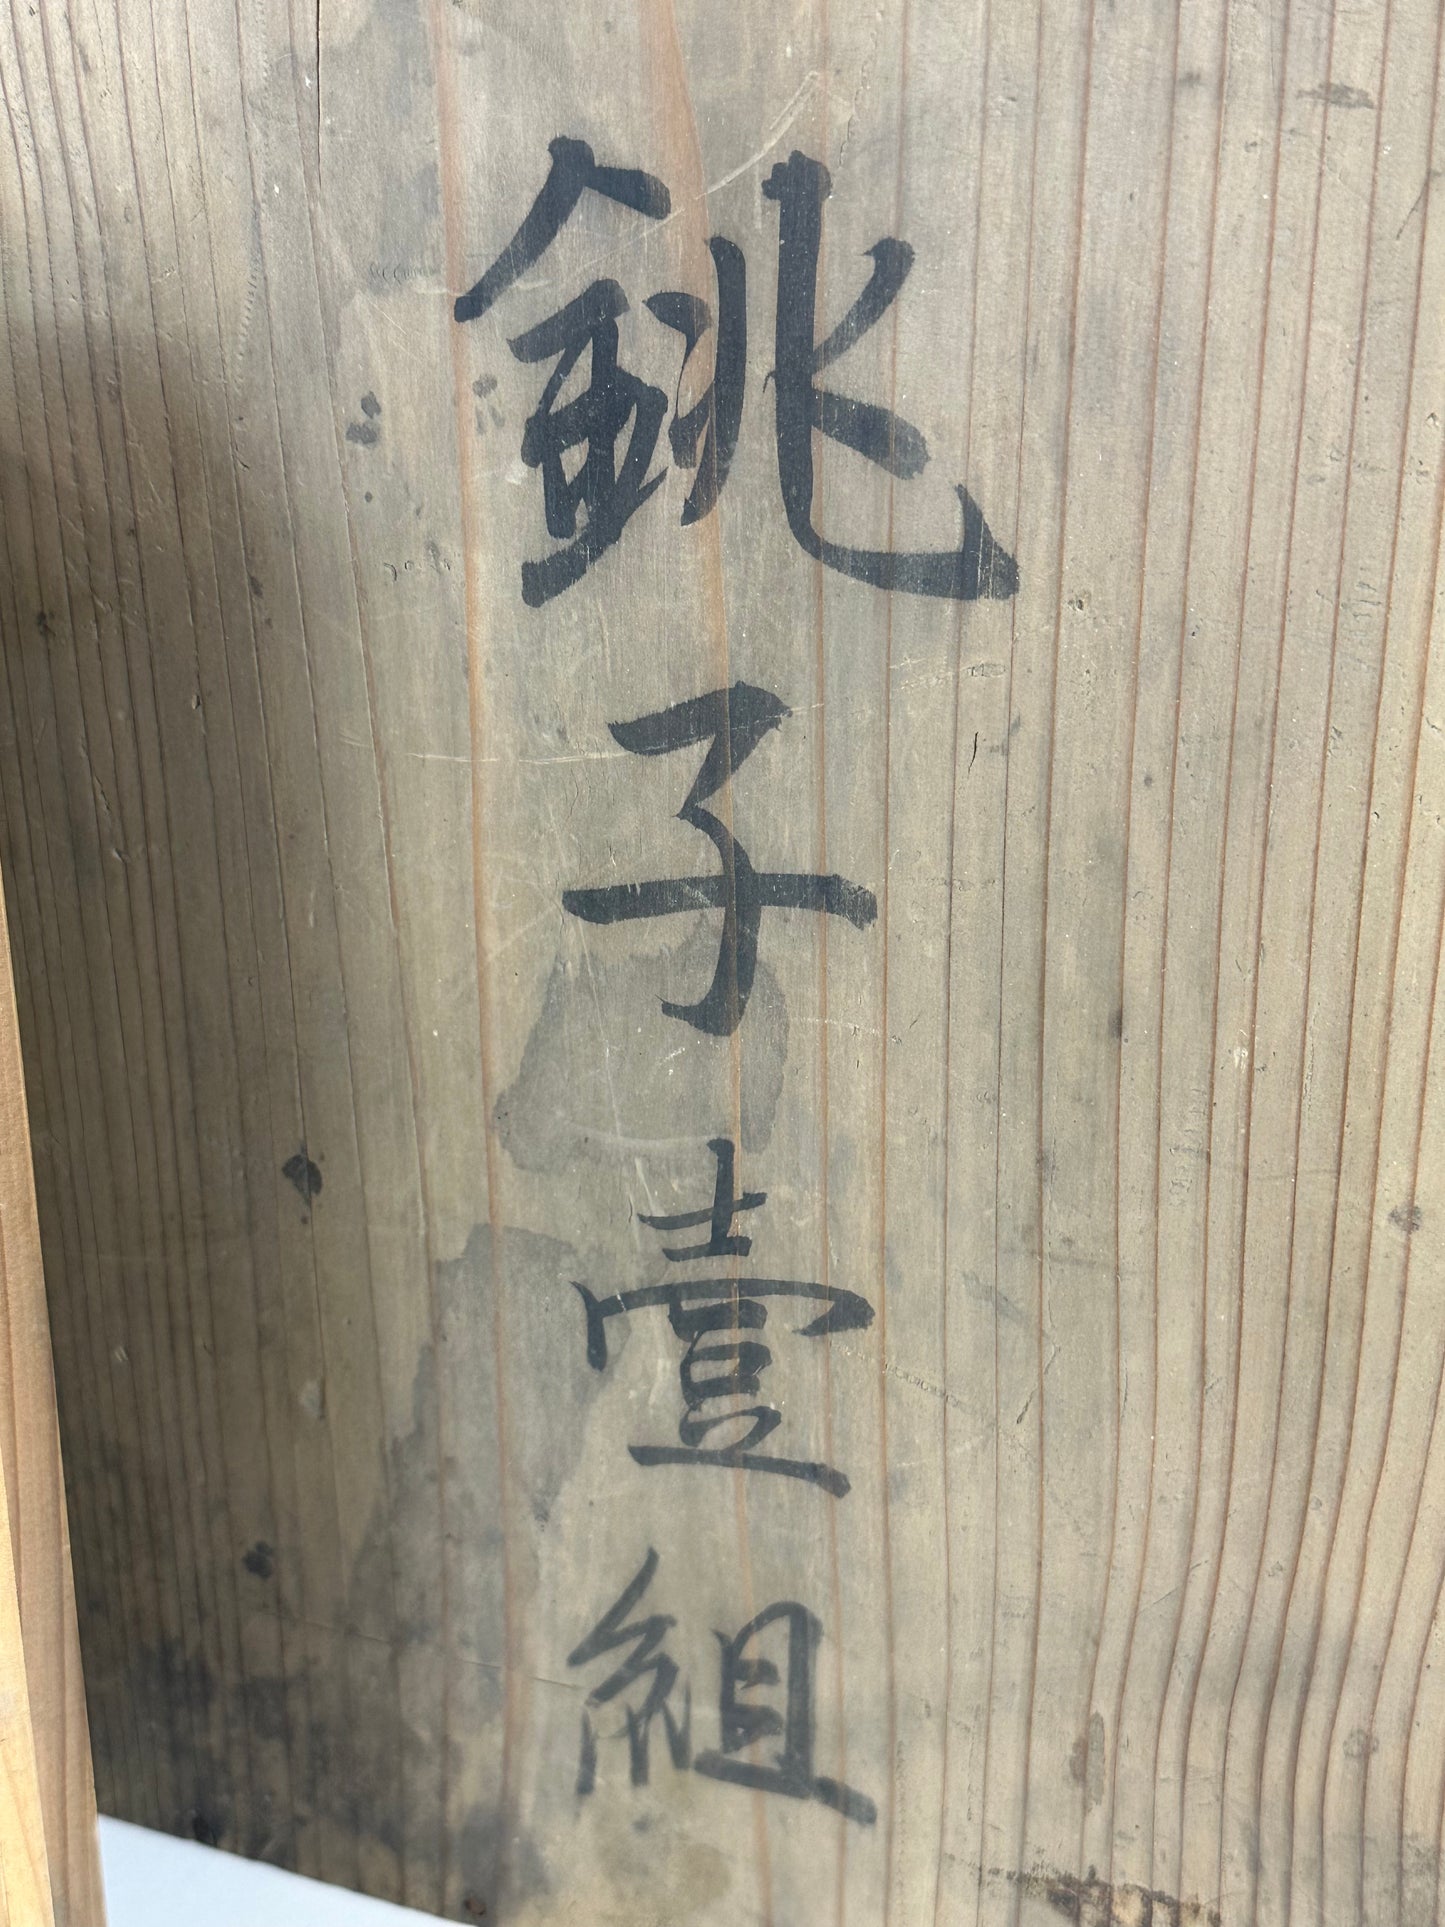 銚子壹組